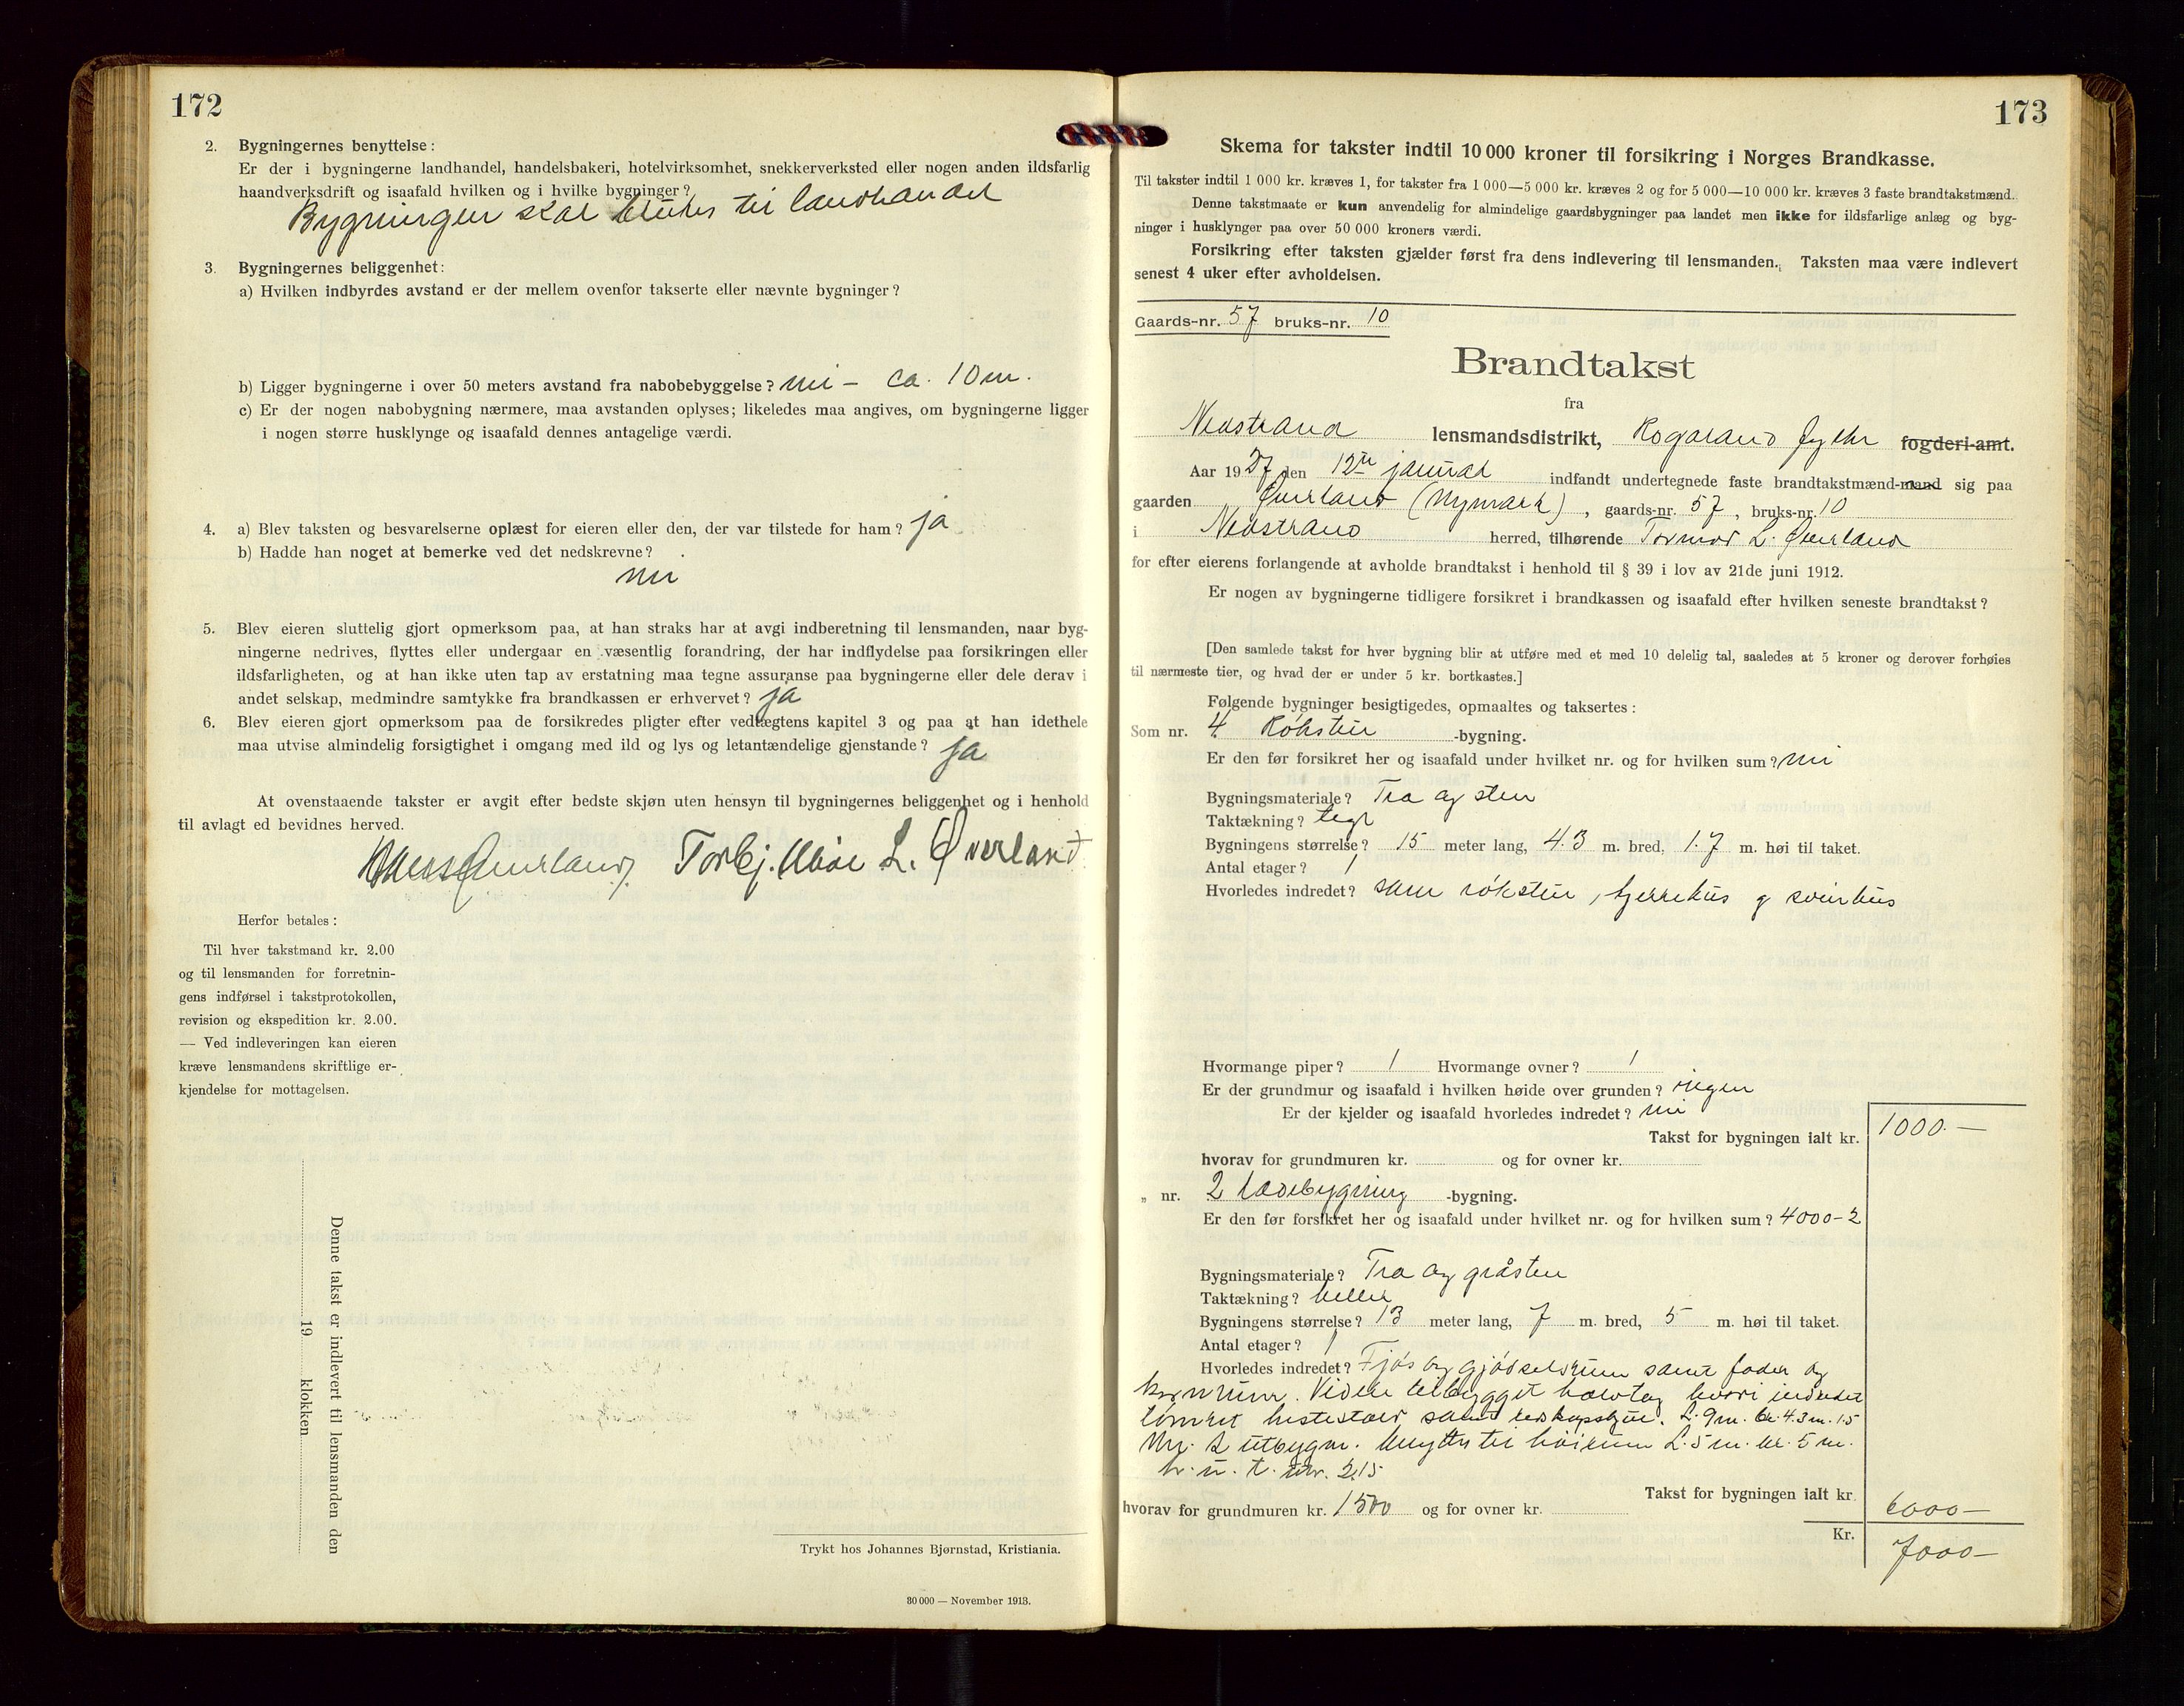 172
2. Bygningernes benyttelse:
Er der i bygningerne landhandel, handelsbakeri, hotelvirksomhet, snekkerverksted eller nogen anden ildsfarlig
haandverksdrift og isaafald hvilken og i hvilke bygninger?
Bygningen skal benyttes til landhandel
3. Bygningernes beliggenhet:
a) Hvilken indbyrdes avstand er der mellem ovenfor takserte eller nævnte bygninger?
b) Ligger bygningerne i over 50 meters avstand fra nabobebyggelse? nei – ca. 10 m.
c) Er der nogen nabobygning nærmere, maa avstanden oplyses; likeledes maa angives, om bygningerne ligger
i nogen større husklynge og isaafald dennes antagelige værdi.
4. a) Blev taksten og besvarelserne oplæst for eieren eller den, der var tilstede for ham? ja
b) Hadde han noget at bemerke ved det nedskrevne?
nei
5. Blev eieren sluttelig gjort opmerksom paa, at han straks har at avgi indberetning til lensmanden, naar byg-
ningerne nedrives, flyttes eller undergaar en væsentlig forandring, der har indflydelse paa forsikringen eller
ildsfarligheten, og at han ikke uten tap av erstatning maa tegne assuranse paa bygningerne eller dele derav i
andet selskap, medmindre samtykke fra brandkassen er erhvervet? ja
6. Blev eieren gjort opmerksom paa de forsikredes pligter efter vedtægtens kapitel 3 og paa at han idethele
maa utvise almindelig forsigtighet i omgang med ild og lys og letantændelige gjenstande? ja
At ovenstaaende takster er avgit efter bedste skjøn uten hensyn til bygningernes beliggenhet og i henhold
til avlagt ed bevidnes herved.
Øverland. Torbj. L. Øverland
Herfor betales:
Til hver takstmand kr. 2.00
og til lensmanden for forretnin-
gens indførsel i takstprotokollen,
revision og ekspedition kr. 2.00.
— Ved indleveringen kan eieren
kræve lensmandens skriftlige er-
kjendelse for mottagelsen.
Denne takst er indlevert til lensmanden den
19 klokken
Trykt hos Johannes Bjørnstad, Kristiania.
30 000 — November 1913.
173
Skema for takster indtil 10 000 kroner til forsikring i Norges Brandkasse.
Til takster indtil 1 000 kr. kræves 1, for takster fra 1 000—5 000 kr. kræves 2 og for 5 000—10 000 kr. kræves 3 faste brandtakstmænd.
Denne takstmaate er kun anvendelig for almindelige gaardsbygninger paa landet men ikke for ildsfarlige anlæg og byg-
ninger i husklynger paa over 50 000 kroners værdi.
Forsikring efter taksten gjælder først fra dens indlevering til lensmanden. Taksten maa være indlevert
senest 4 uker efter avholdelsen.
Gaards-nr. 57 bruks-nr. 10
Brandtakst
fra
Nedstrand lensmandsdistrikt, Rogaland fylke fogderi-amt.
Aar 1927 den 12te januar indfandt undertegnede faste brandtakstmænd-mand sig paa
gaarden Øverland (Nymark), gaards-nr. 57, bruks-nr. 10
i Nedstrand herred, tilhørende Tormod L. Øverland
for efter eierens forlangende at avholde brandtakst i henhold til § 39 i lov av 21de juni 1912.
Er nogen av bygningerne tidligere forsikret i brandkassen og isaafald efter hvilken seneste brandtakst?
[Den samlede takst for hver bygning blir at utføre med et med 10 delelig tal, saaledes at 5 kroner og derover forhøies
til nærmeste tier, og hvad der er under 5 kr. bortkastes.]
Følgende bygninger besigtigedes, opmaaltes og taksertes:
Som nr. 4 Røksteu -bygning.
Er den før forsikret her og isaafald under hvilket nr. og for hvilken sum? nei
Bygningsmateriale? Træ og sten
Taktækning? tegl
Bygningens størrelse? 15 meter lang, 4.3 m. bred, 1.7 m. høi til taket.
Antal etager? 1
Hvorledes indredet? som røksteu, kjerrehus og
Hvormange piper? 1 Hvormange ovner? 1
Er der grundmur og isaafald i hvilken høide over grunden? ingen
Er der kjelder og isaafald hvorledes indredet? nei
Takst for bygningen ialt kr. 1000.—
hvorav for grundmuren kr. og for ovner kr.
„ nr. 2 Ladebygning -bygning.
Er den før forsikret her og isaafald under hvilket nr. og for hvilken sum? 4000-2
Bygningsmateriale? Træ og gråsten
Taktækning? heller
Bygningens størrelse? 13 meter lang, 7 m. bred, 5 m. høi til taket.
Antal etager? 1
Hvorledes indredet? Fjøs og gjødselrum samt foder og
kornrum. Videre tilbygget halvtag hvori indredet
tømret hestestald samt redskapsskjul. L. 9 m. br. 4.3 m. 1.5
Nr. 2 utbygn. benyttes til høirum L. 5 m. br. 5 m.
h. u. t. 2,15
Takst for bygningen ialt kr. 6000—
hvorav for grundmuren kr. 1500 og for ovner kr.
Kr. 7000—